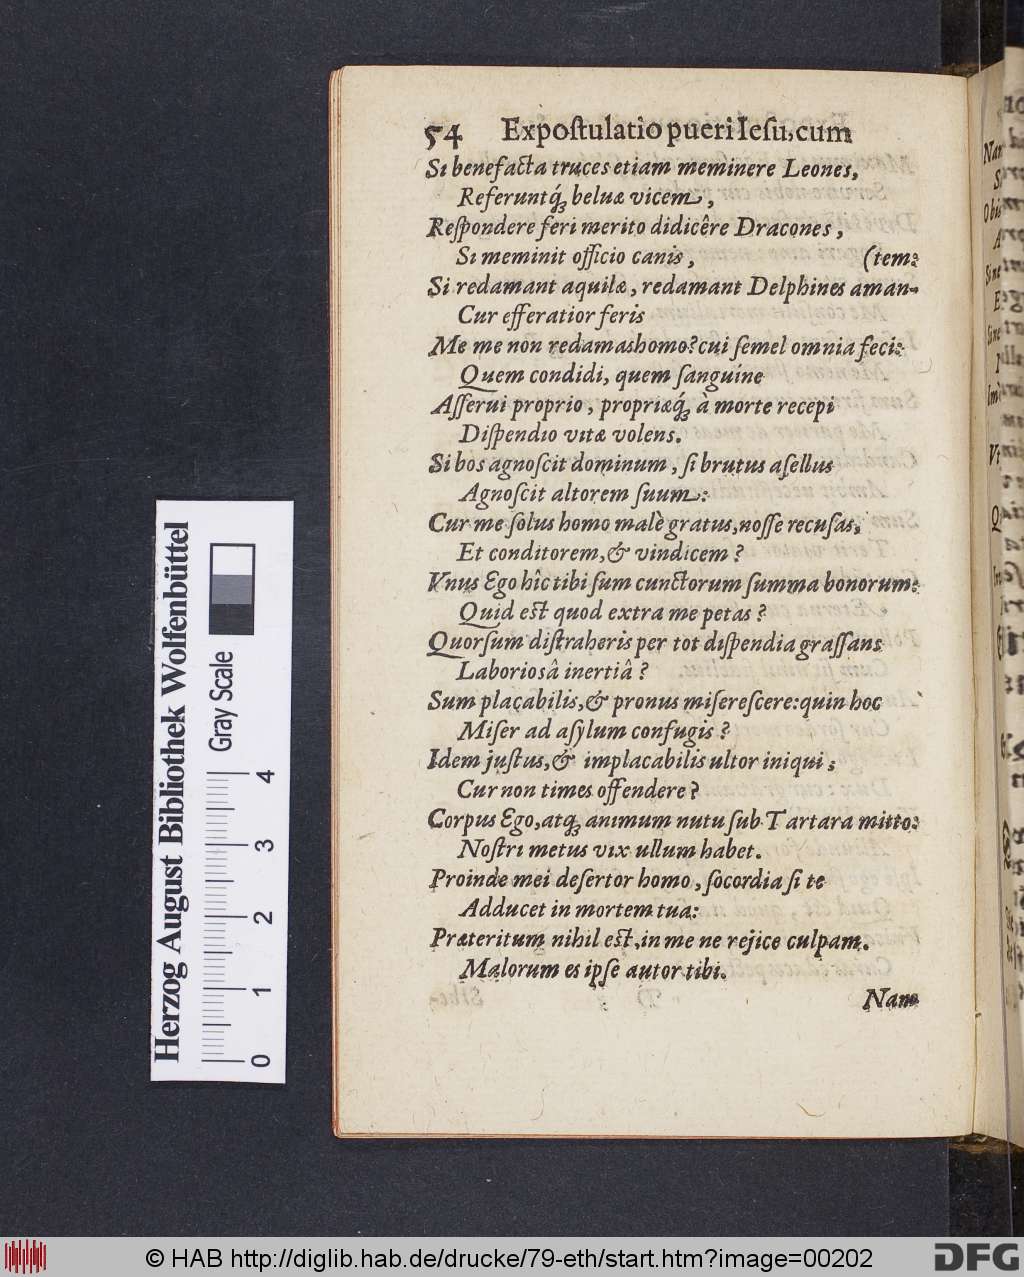 54 Expoſtulatio pueri Ieſu, cum
Si benefacta truces etiam meminere Leones,
Referuntq́ꝫ beluæ vicem,
Reſpondere feri merito didicêre Dracones,
Si meminit officio canis, (tem:
Si redamant aquilæ, redamant Delphines aman-
Cur efferatior feris
Me me non redamas homo? cui ſemel omnia feci:
Quem condidi, quem ſanguine
Aſſerui proprio, propriæq́ꝫ à morte recepi
Diſpendio vitæ volens.
Si bos agnoſcit dominum, ſi brutus aſellus
Agnoſcit altorem ſuum:
Cur me ſolus homo malè gratus, noſſe recuſas,
Et conditorem, & vindicem?
Vnus Ego hîc tibi ſum cunctorum ſumma bonorum:
Quid eſt quod extra me petas?
Quorſum diſtraheris per tot diſpendia graſſans
Laboriosâ inertiâ?
Sum placabilis, & pronus miſereſcere: quin hoc
Miſer ad aſylum confugis?
Idem juſtus, & implacabilis ultor iniqui;
Cur non times offendere?
Corpus Ego, atqꝫ animum nutu ſub Tartara mitto:
Noſtri metus vix ullum habet.
Proinde mei deſertor homo, ſocordia ſi te
Adducet in mortem tua:
Præteritum nihil eſt, in me ne rejice culpam.
Malorum es ipſe autor tibi.
Nam
Herzog August Bibliothek Wolfenbüttel
Gray Scale
0 1 2 3 4
© HAB http://diglib.hab.de/drucke/79-eth/start.htm?image=00202
DFG